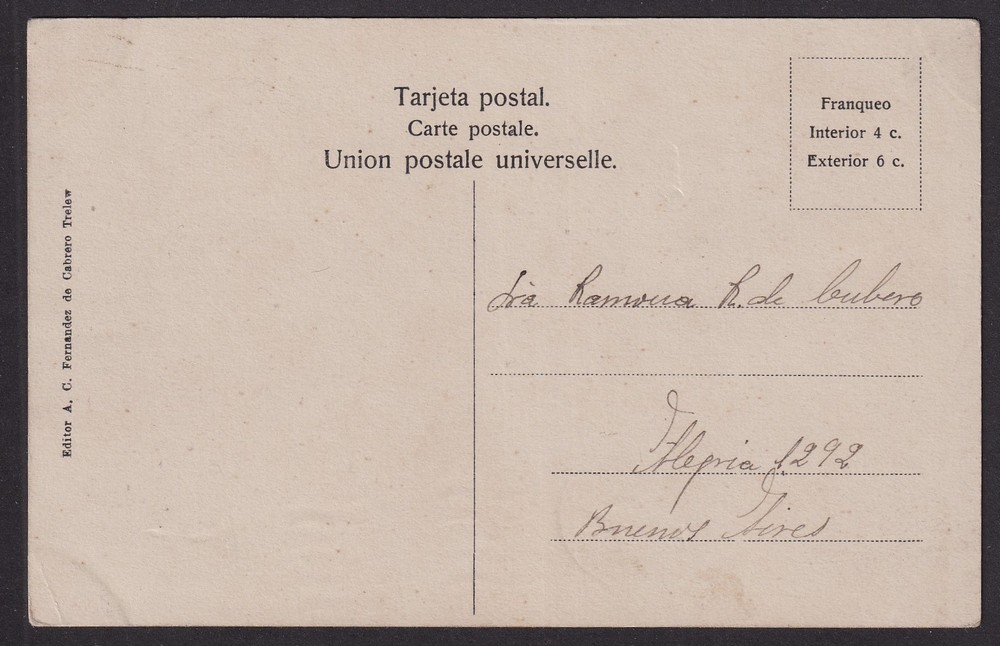 Tarjeta postal.
Carte postale.
Union postale universelle.
Franqueo
Interior 4 c.
Exterior 6 c.
Editor A. C. Fernandez de Cabrero Trelew
Sra Ramona R. de Cubero
Alegria 1292
Buenos Aires